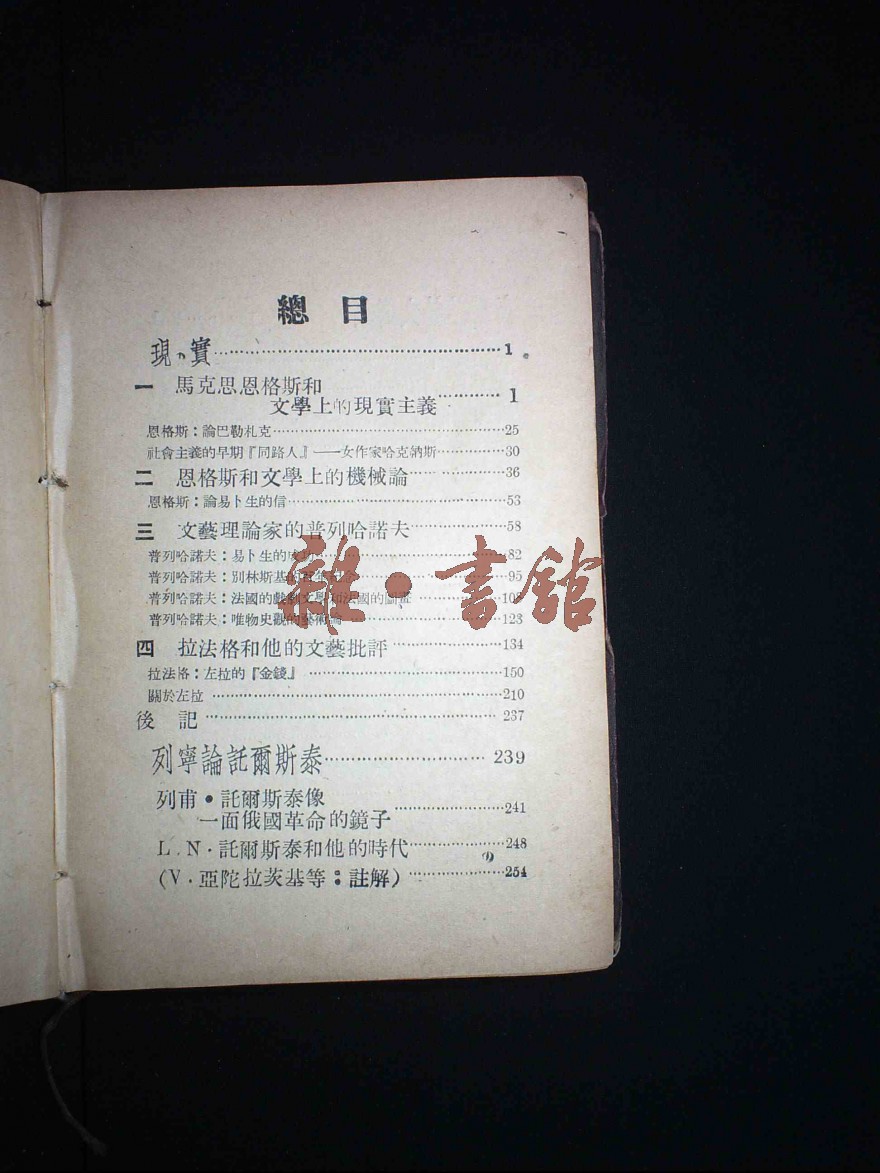 總目
現實……1
一 馬克思恩格斯和
文學上的現實主義……1
恩格斯：論巴勒札克……25
社會主義的早期『同路人』——女作家哈克納斯……30
二 恩格斯和文學上的機械論……36
恩格斯：論易卜生的信……53
三 文藝理論家的普列哈諾夫……58
普列哈諾夫：易卜生的成功……82
普列哈諾夫：別林斯基的……95
普列哈諾夫：法國的戲劇文學和法國的圖畫……10
普列哈諾夫：唯物史觀的藝術論……123
四 拉法格和他的文藝批評……134
拉法格：左拉的『金錢』……150
關於左拉……210
後記……237
列寧論託爾斯泰……239
列甫·託爾斯泰像
一面俄國革命的鏡子……241
L.N.託爾斯泰和他的時代……248
（V.亞陀拉茨基等：註解）……254
雜·書館